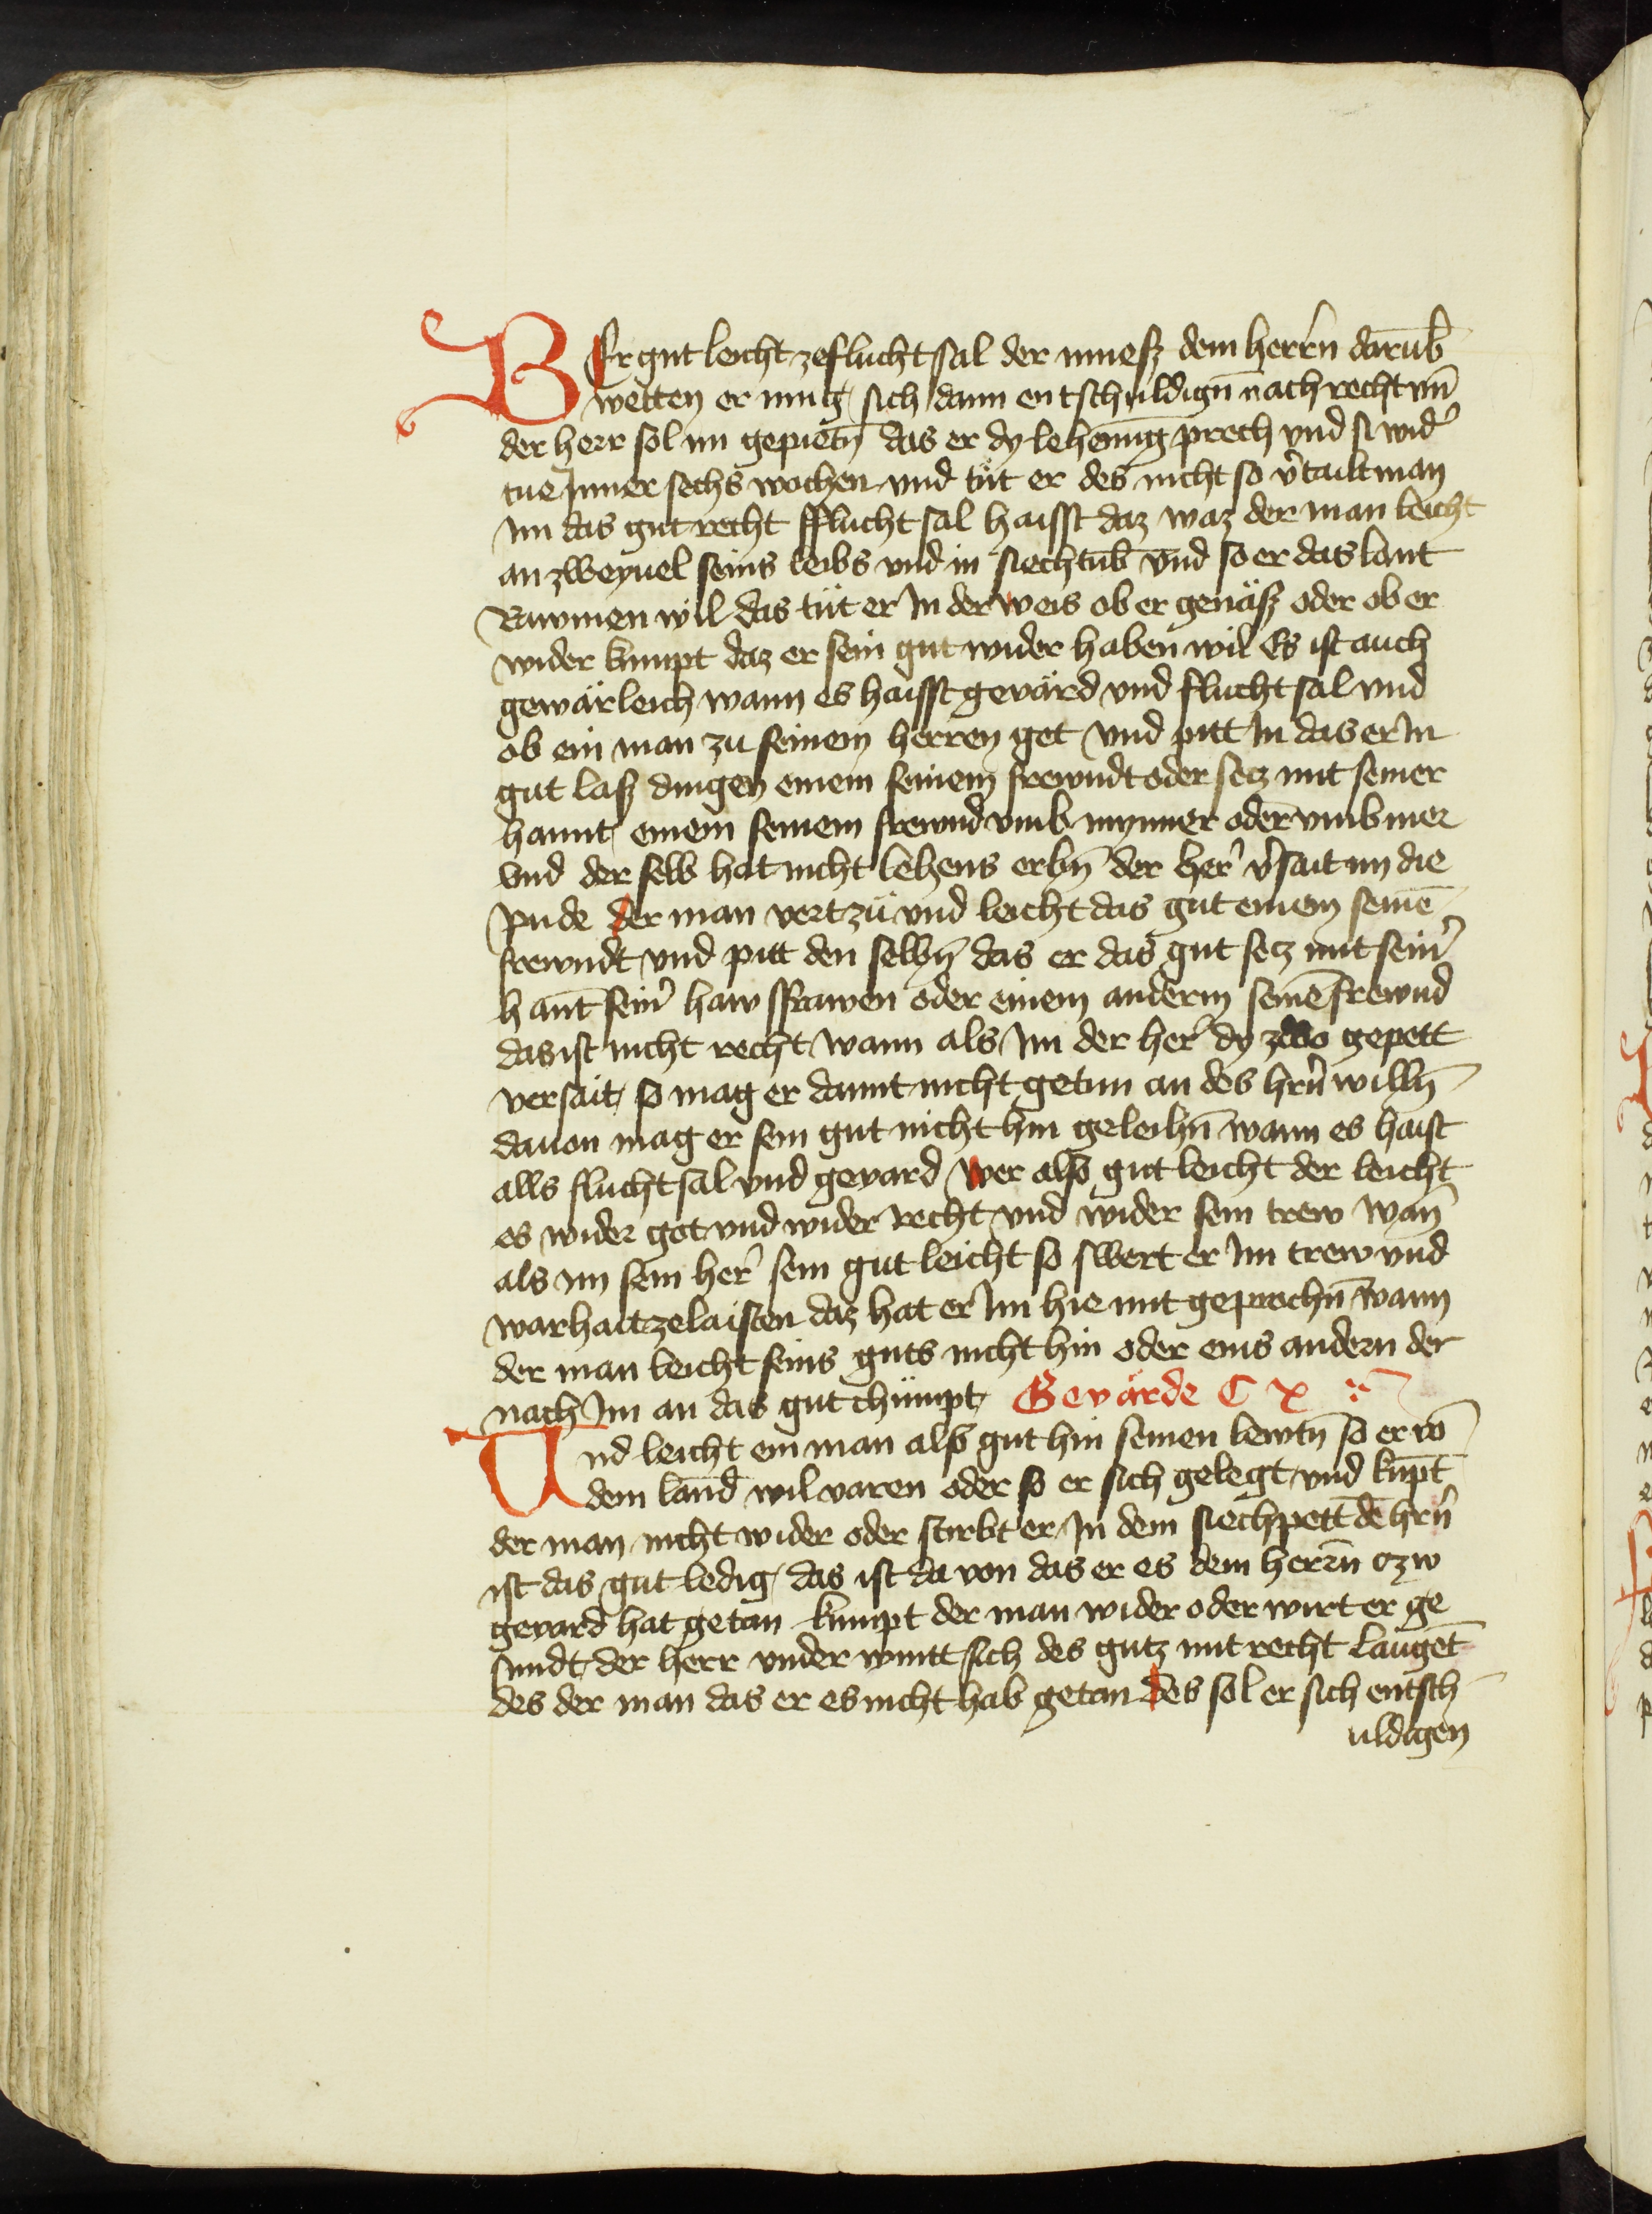 WEr gut leicht ze flucht sal der muesz dem herrn̄ darūb
wetten er mug sich dann entschuldign̄ nach recht vn̄
der herr sol im gepietn̄ das er dy lehenūng prech vnd si wid̾
tue Inner sechs wochen vnd tüt er des nicht so v̾tailt man
Im das gut recht fflucht sal haisst daz waz der man leicht
an zweyuel seins leibs vnd in siechtūb vnd so er das lant
Rawmen wil das tüt er In der weis ob er genäsz oder ob er
wider kumpt daz er sein gut wider haben wil Es ist auch
gewärleich wann es haisst gevärd vnd flucht sal vnd
ob ein man zu seinem herren get vnd pitt In das er In
gut lasz dingen einem seinem frewndt oder secz mit seiner
hannt einem seinem frewnd vmb mynner oder vmb mer
vnd der selb hat nicht lehens erbn̄ der her̾ v̾sait im die
pnde der man vert zü vnd leicht das gut einem seinē
frewndt vnd pitt den selbn̄ das er das gut secz mit sein̾
hant sein̾ haws frawen oder einem anderm seinē frewnd
das ist nicht recht wann als Im der her̾ dy zwo gepett
versait so mag er damit nicht getun an des hrn̄ willn̄
dauon mag er sein gut nicht hin geleihn̄ wann es haist
alls flucht sal vnd gevard Wer also gut leicht der leicht
es wider got vnd wider recht vnd wider sein trew Wan̄
als im sein her̾ sein gut leicht so swert er Im trew vnd
warhait ze laisten daz hat er Im hie mit geprochn̄ wann
der man leicht seins guts nicht hin oder eins andern der
nach Im an das gut chümpt Gevärde C x
Und leicht ein man also gut hin seinen lewtn̄ so er vō
dem land wil varen oder so er sich gelegt vnd kūpt
der man nicht wider oder stirbt er In dem siechpett dē hrn̄
ist das gut ledig das ist da von das er es dem herrn̄ czw
gevard hat getan kumpt der man wider oder wirt er ge
sundt der herr vnder wintt sich des gutz mit recht laugēt
des der man das er es nicht hab getan des sol er sich entsch
uldigen